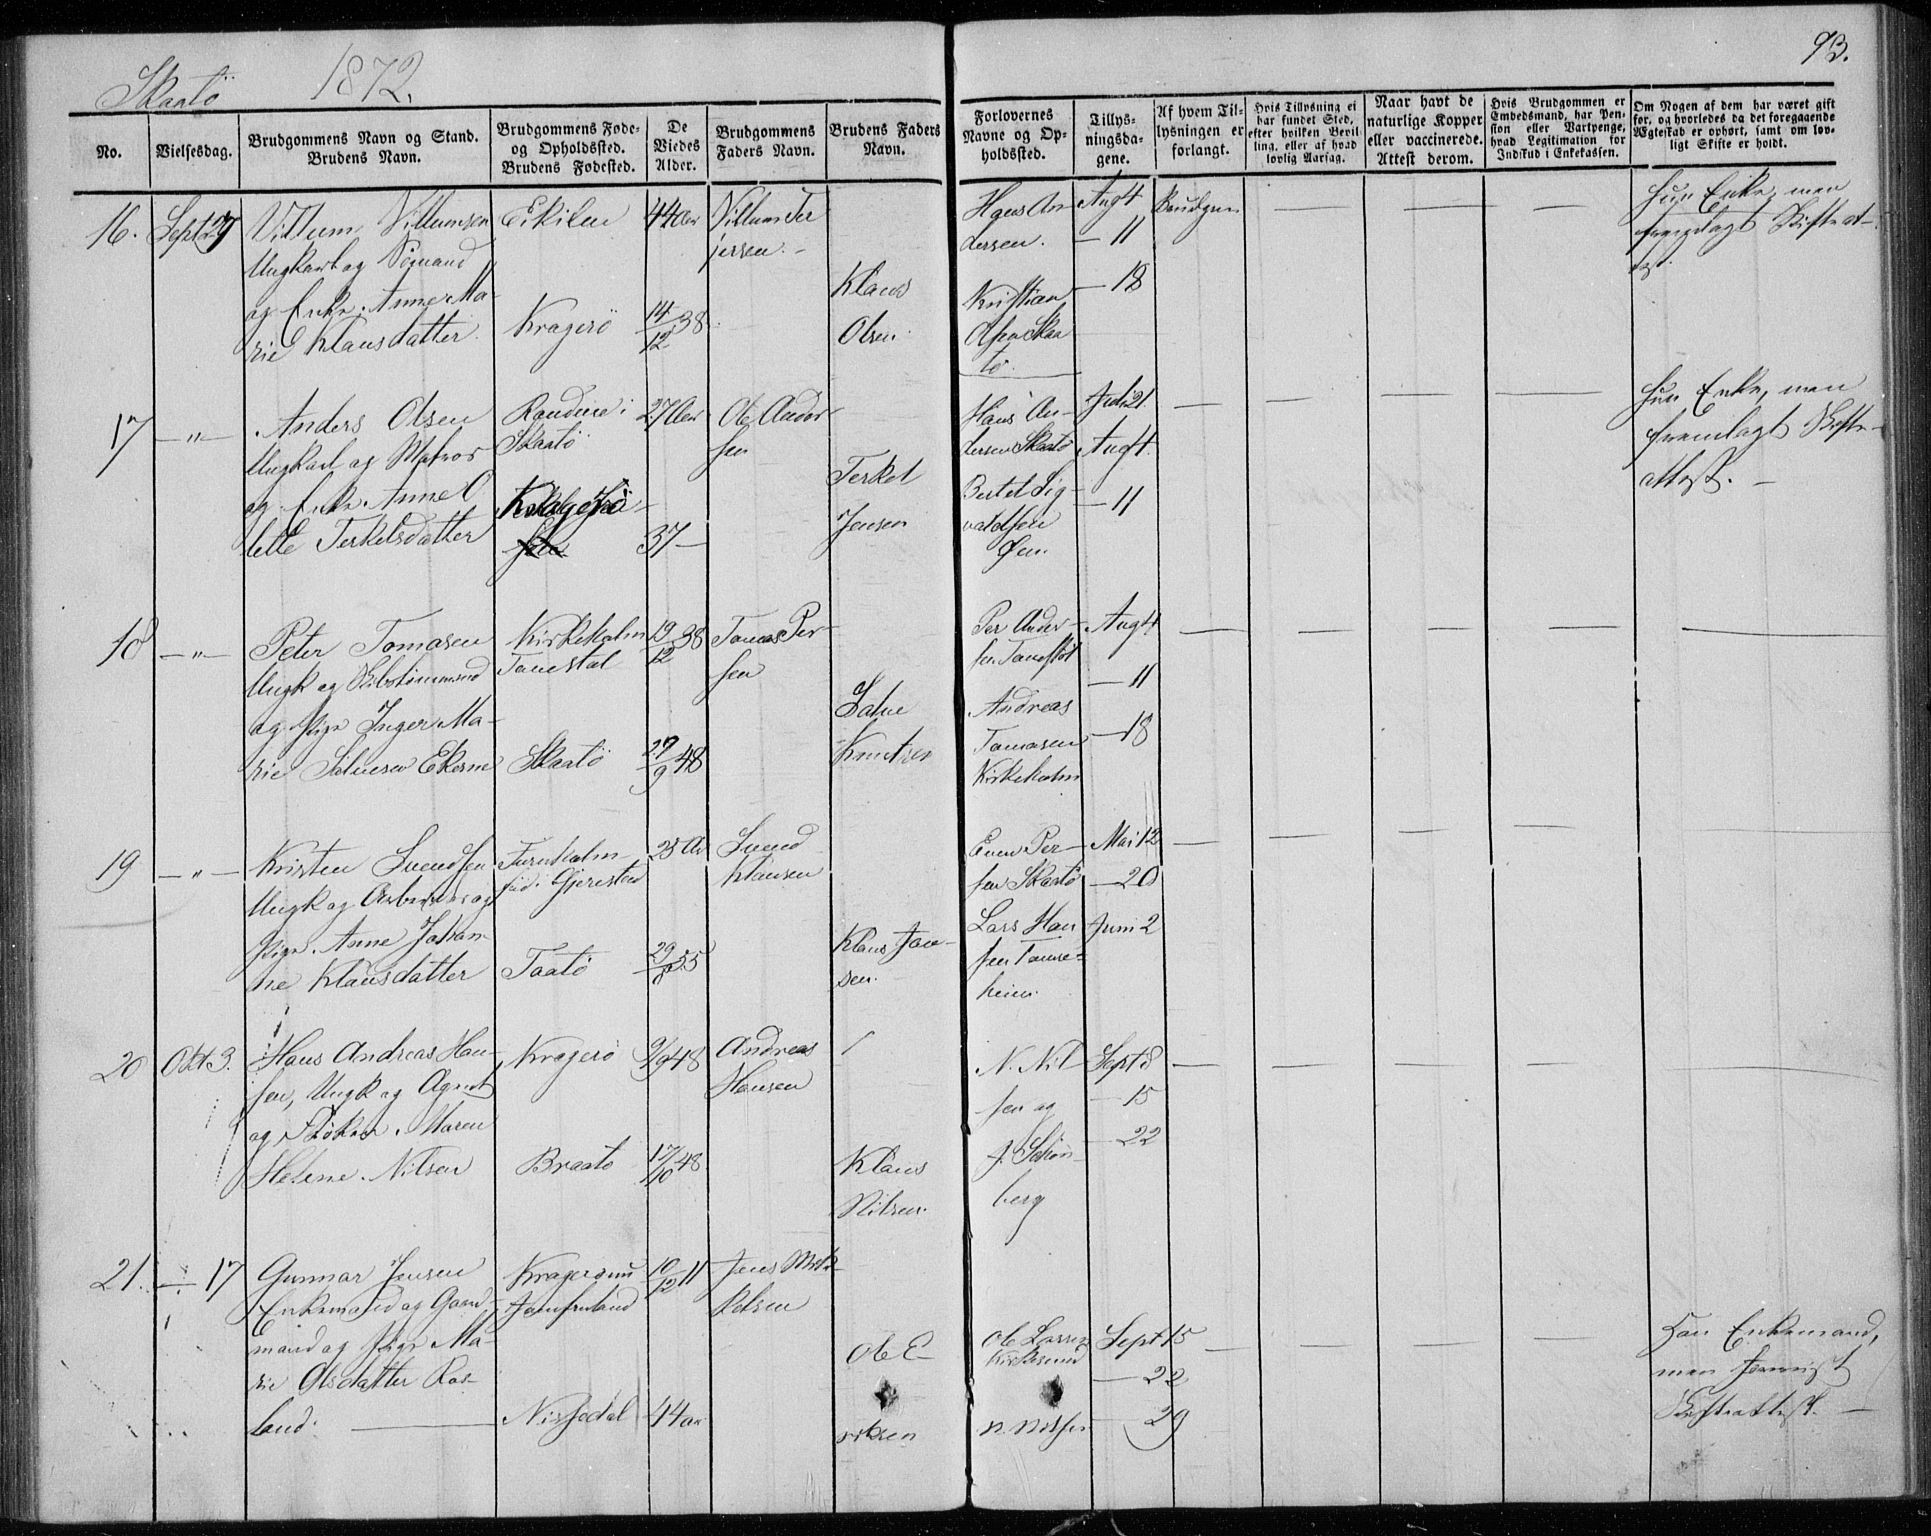 93.
Skaatö 1872.
No.
Vielsesdag.
Brudgommens Navn og Stand.
Brudens Navn.
Brudgommens Føde-
og Opholdssted.
Brudens Fødested.
De
Viedes
Alder.
Brudgommens
Faders Navn.
Brudens Faders
Navn.
Forlovernes
Navne og Op-
holdssted.
Tillys-
ningsda-
gene.
Af hvem Til-
lysningen er
forlangt.
Hvis Tillysning ei
har fundet Sted,
efter hvilken Bevil-
ling, eller af hvad
lovlig Aarsag.
Naar havt de
naturlige Kopper
eller vaccinerede.
Attest derom.
Hvis Brudgommen er
Embedsmand, har Pen-
sion eller Vartpenge,
hvad Legitimation for
Indskud i Enkekassen.
Om Nogen af dem har været gift
før, og hvorledes da det foregaaende
Ægteskab er ophørt, samt om lov-
ligt Skifte er holdt.
16. Sept 27
Villum Villumsen
Ungkarl og Sømand
og Enke Anne Ma-
rie Klausdatter.
Eikilen
Kragerö
44 Aar
14/12 38
Villum Ter
jersen.
Klaus
Olsen
Hans An
dersen.
Kristian
Olsen Skaa
tö.
Aug 4
— 11
— 18
Brudgom
— — — —
Hun Enke, men
fremlagt Skifteat-
test.
17 — " —
Anders Olsen
Ungkarl og Matros
og Enke Anne O
lette Terkelsdatter
Skaatö
27 Aar
37 —
Ole Ander
sen
Terkel
Jensen
Hans An-
dersen Skaatö
Bertel Sig-
valdsen
Øen.
Juli 21
Aug 4.
— 11
— — — — —
Hun Enke, men
fremlagt Skifte-
attest. —
18 — " —
Peter Tomasen
Ungk og
og Pige Inger Ma-
rie
Kirkeholm
Skaatö
19/12 38
27/9 48
Tomas Per-
sen
Knutsen
Per Ander-
sen
Andreas
Tomasen
Kirkeholm
Aug 4
— 11
— 18
— — — — —
19 — " —
Kristen Svendsen
Ungk og Arbeider og
Pige Anne Johan-
ne Klausdatter
Furuholm
född i Gjerestad
Taatö
25 Aar
29/8 55
Svend
Klausen
Klaus Jan-
sen.
Even Per-
sen Skaatö
Lars Han
sen
heien.
Mai 12
— 20
Juni 2
— — — — —
20 Okt 3.
Hans Andreas Han-
sen, Ungk og Agent
og Frøken Maren
Helene Nilsen
Kragerö
Braatö
9/9 48
17/10 48
Andreas
Hansen
Klaus
Nilsen.
N. Nil-
sen og
J. Schön-
berg
Sept 8
— 15
— 22
— — — — —
21. — 17
Gunnar Jensen
Enkemand og Gaard-
mand og Pige Ma-
rie Olsdatter Ros-
land.
Jomfruland
Nissedal
10/12 11
44 Aar
Jens
Ole E-
riksen
Ole Larsen
Kirkesund
N. Nilsen
Sept 15
— 22
29
— — — — —
Han Enkemand,
men forevist
Skifteattest. —